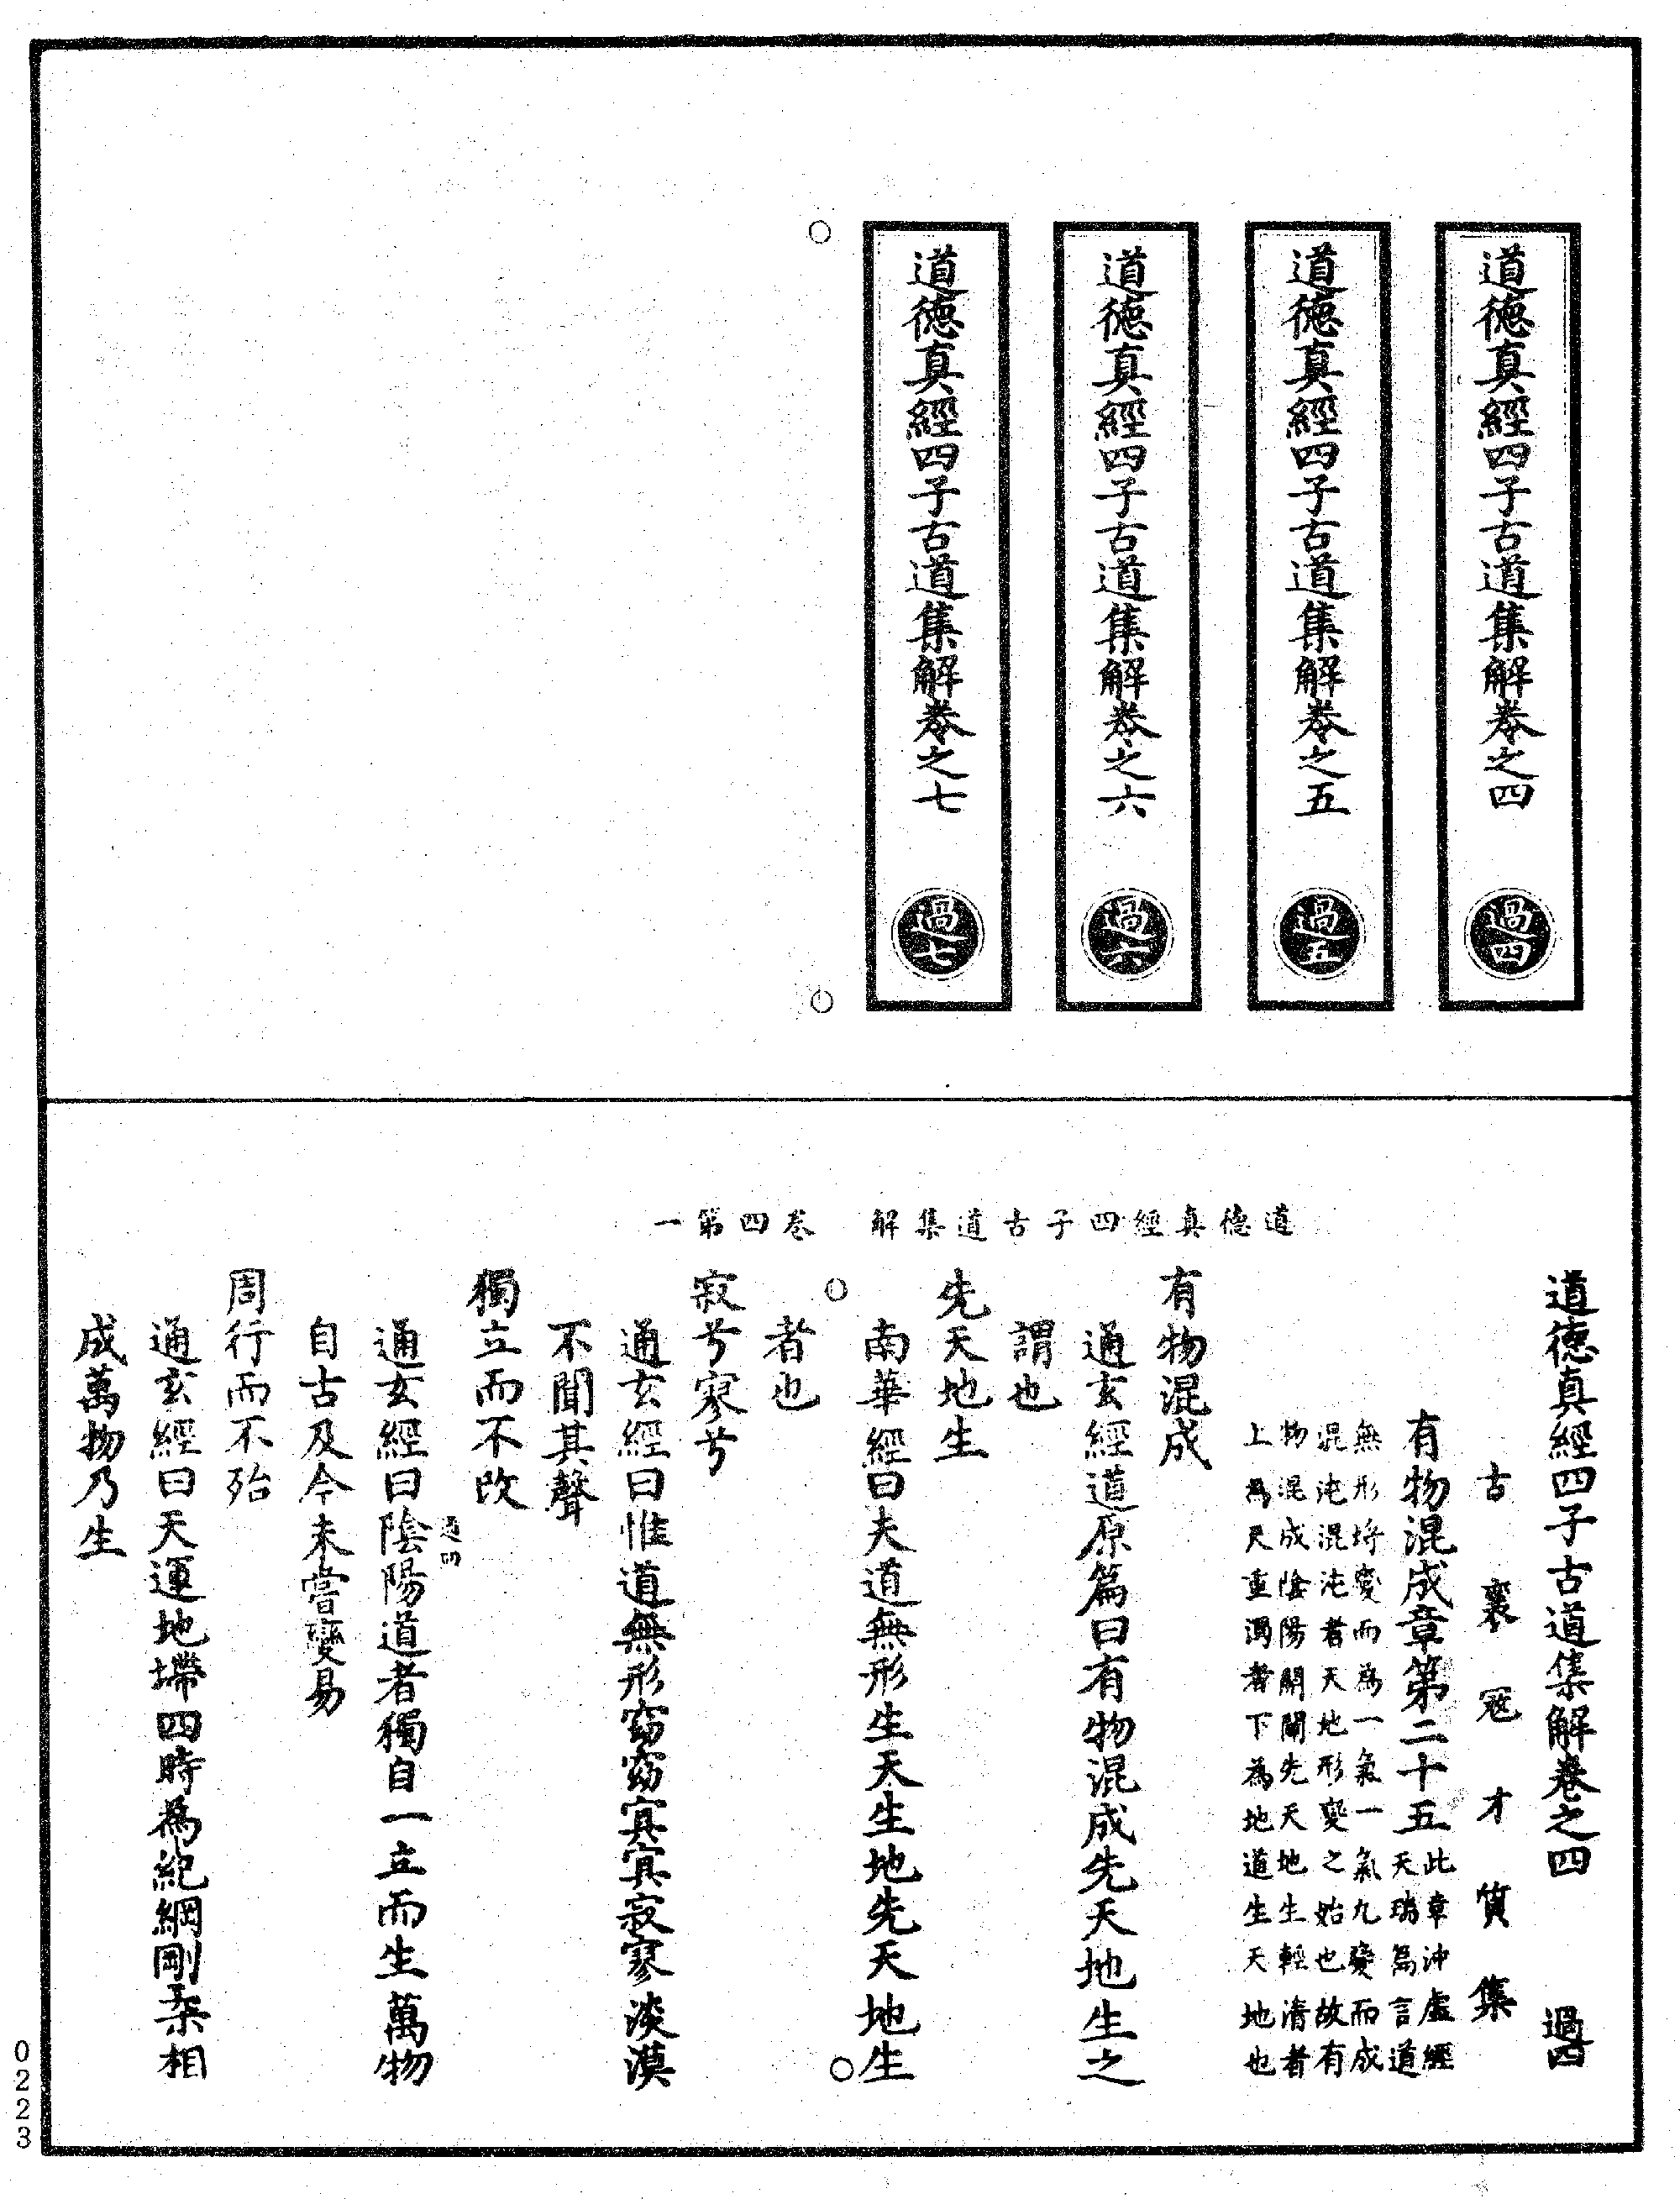 道德真經四子古道集解卷之四
過四
道德真經四子古道集解卷之五
過五
道德真經四子古道集解卷之六
過六
道德真經四子古道集解卷之七
過七
道德真經四子古道集解 卷四第一
道德真經四子古道集解卷之四 過四
古襄寇才質集
有物混成章第二十五
此章沖虛經
天瑞篇言道
無形埒變而為一氣一氣九變而成
混沌混沌者天地形變之始也故有
物混成陰陽開闔先天地生輕清者
上為天重濁者下為地道生天地也
有物混成
通玄經道原篇曰有物混成先天地生之
謂也
先天地生
南華經曰夫道無形生天生地先天地生
者也
寂兮寥兮
通玄經曰惟道無形窈窈冥冥寂寥淡漠
不聞其聲
獨立而不改
通玄經曰陰陽道者獨自一立而生萬物
自古及今未嘗變易
周行而不殆
通玄經曰天運地墆四時為紀綱剛柔相
成萬物乃生
0223